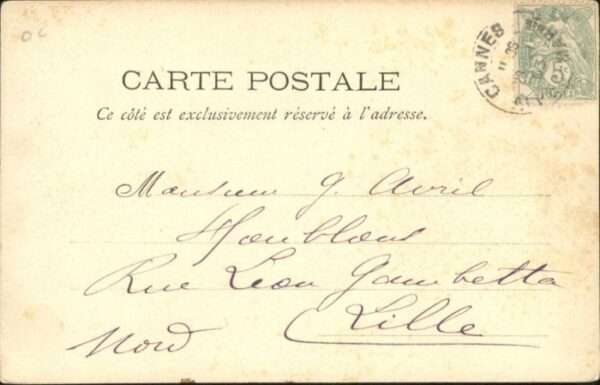 OC
CANNES
5
CARTE POSTALE
Ce côté est exclusivement réservé à l'adresse.
Monsieur J. Avril
Houblons
Rue Léon Gambetta
Lille
Nord